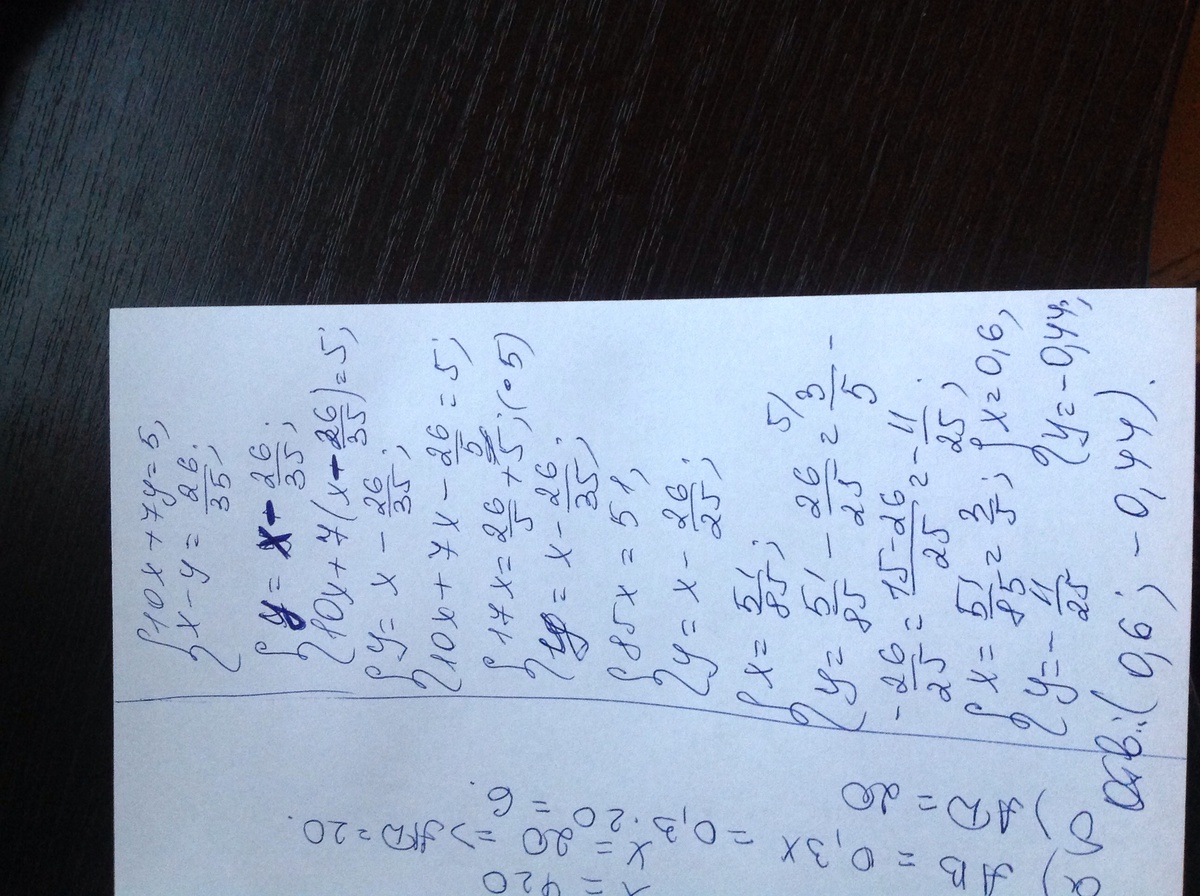 {10x+7y=5,
x-y=26/35;
{y=x-26/35;
10x+7(x-26/35)=5;
{y=x-26/35;
10x+7x-26/5=5;
{17x=26/5+5;(•5)
y=x-26/35;
{85x=51,
y=x-26/25;
{x=51/85;
y=51/85-26/25=3/5 5/-
-26/25=15-26/25=-11/25;
{x=51/85=3/5; {x=0,6,
y=-11/25 y=-0,44;
Отв.:(0,6; -0,44).
=420
x=20=>AD=20.
AB=0,3x=0,3·20=6.
)AD=20